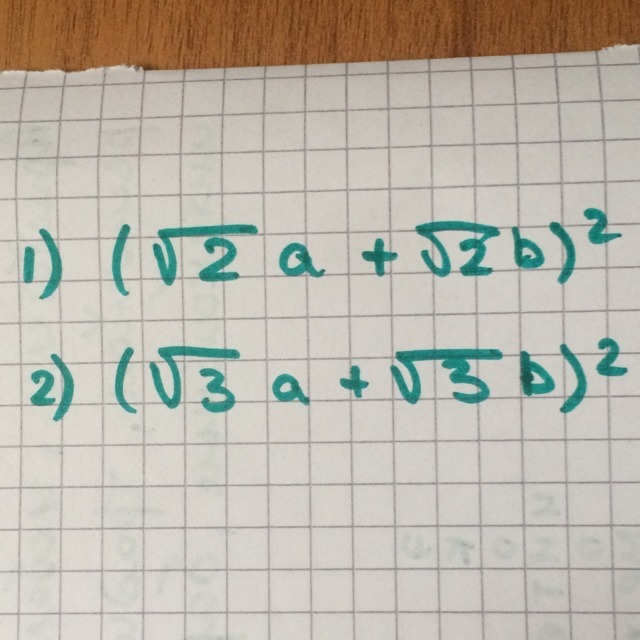 1) (√2 a + √2 b)²
2) (√3 a + √3 b)²